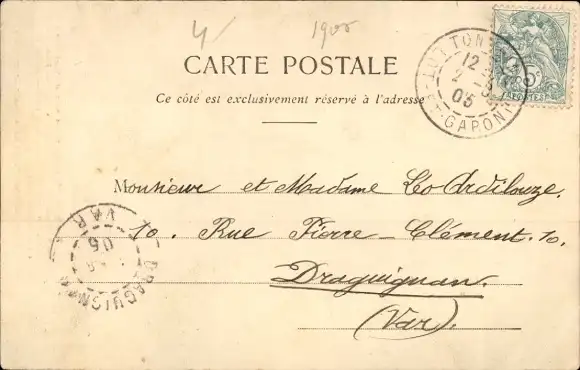 4/ 1905
CARTE POSTALE
Ce côté est exclusivement réservé à l'adresse
12
05
GARONNE
5c
POSTES
Monsieur et Madame Léo Ardilouze.
10. Rue Pierre-Clément. 10.
Draguignan.
(Var).
DRAGUIGNAN
05
VAR